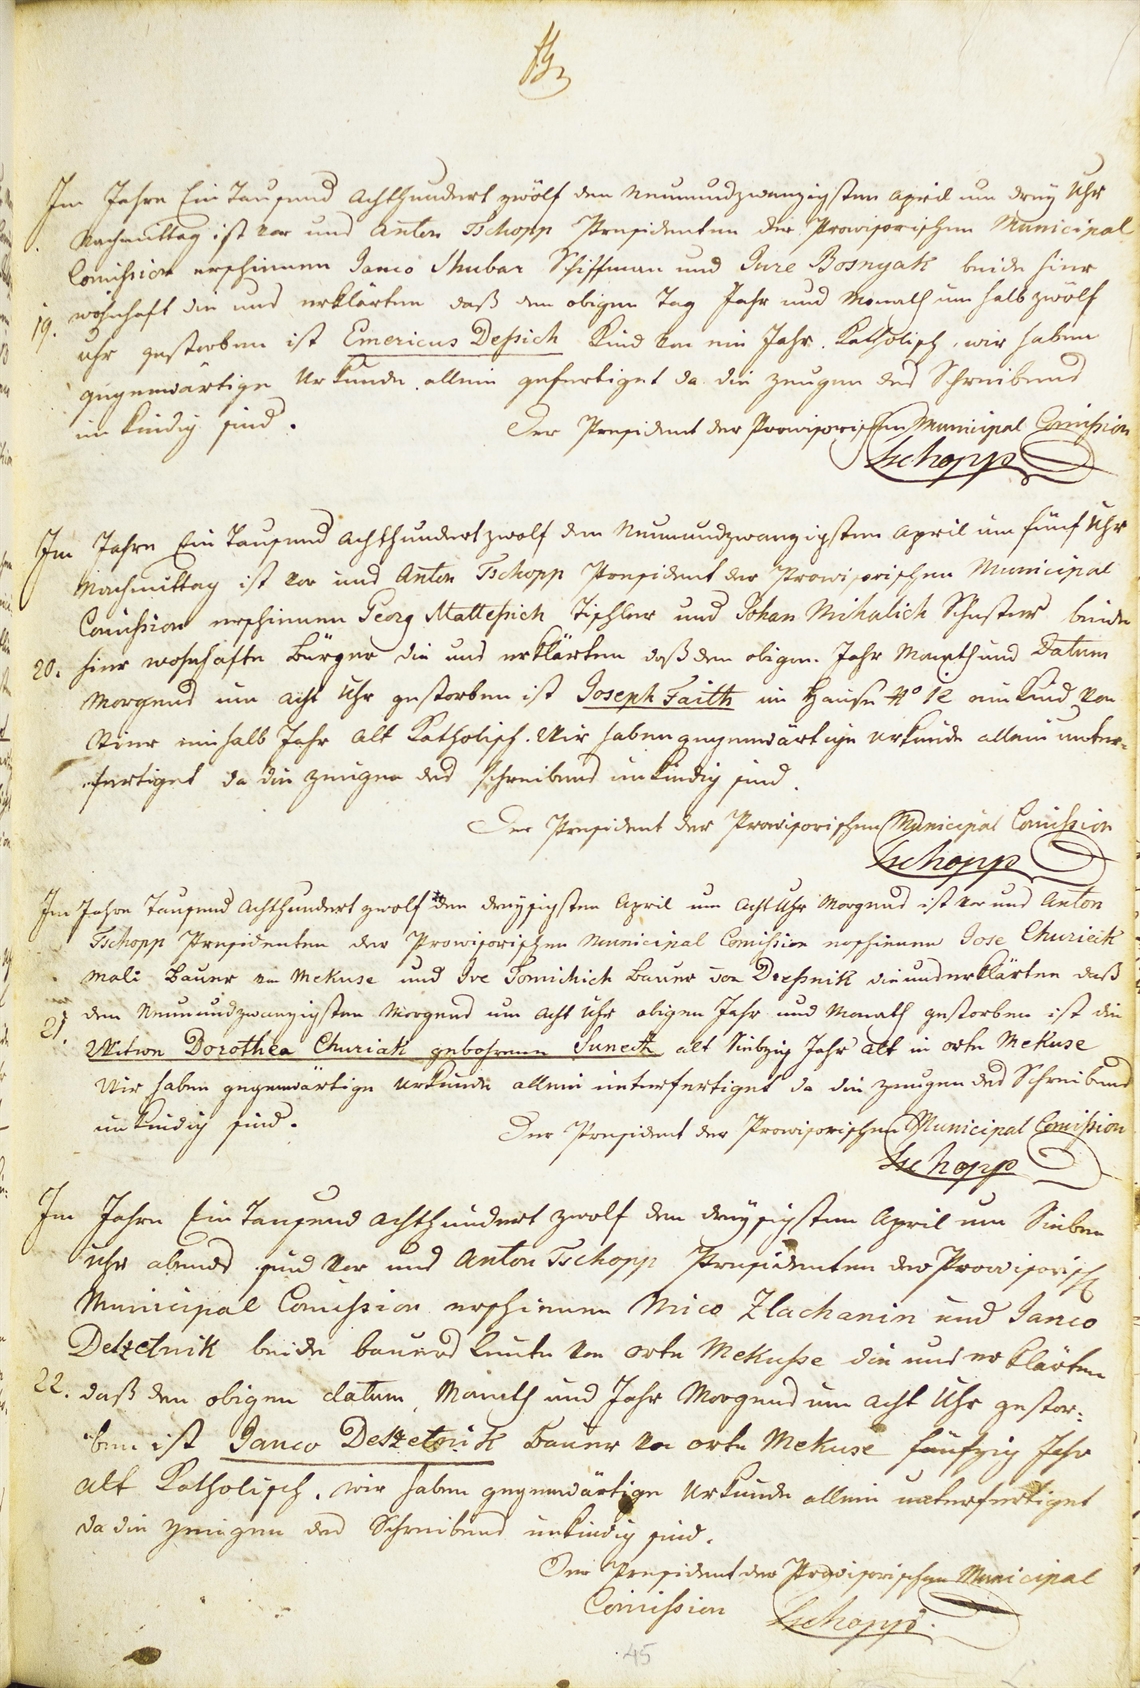 Im Jahre Ein Tausend Achthundert zwölf den Neunundzwanzigsten April um drey Uhr
Nachmittag ist vor uns Anton Tschopp Presidenten der Prowisorischen Municipal
Comission erschienen Janco Shubar Schiffman und Jure Bosnyak beide hier
19. wohnhaft die uns erklärten daß den obigen Tag Jahr und Monath um halb zwölf
Uhr gestorben ist Emericus Dessich Kind von ein Jahr. Katholisch, wir haben
gegenwärtige Urkunde allein gefertiget da die zeugen des Schreibens
unkündig sind.
Der President der Prowisorischen Municipal Comission
Tschopp
Im Jahre Ein Tausend Achthundert zwolf den Neunundzwanzigsten April um fünf Uhr
Nachmittag ist vor uns Anton Tschopp President der Prowisorischen Municipal
Comission erschienen Georg Mattessich Tischler und Johan Mihalich Schuster beide
20. hier wohnhafte Bürger die uns erklärten daß den obigen Jahr Monath und Datum
Morgens um acht Uhr gestorben ist Joseph Faith im Hause No 12 ein Kind von
Vier einhalb Jahr alt Katholisch. Wir haben gegenwärtige Urkunde allein unter-
fertiget da die zeugen des schreibens unkündig sind.
Der President der Prowisorischen Municipal Comission
Tschopp
Im Jahre Tausend Achthundert zwolf den dreysigsten April um Acht Uhr Morgens ist vor uns Anton
Tschopp Presidenten der Prowisorischen Municipal Comission erschienen Jose Churiack
Mali Bauer von Mekuse und Ive Tomichich Bauer von Dressnik die uns erklärten daß
den Neunundzwanzigsten Morgens um acht Uhr obigen Jahr und Monath gestorben ist die
21. Witwe Dorothea Churiak gebohrene alt Siebzig Jahr alt in orte Mekuse
Wir haben gegenwärtige Urkunde allein unterfertiget da die zeugen des Schreibens
unkündig sind.
Der President der Prowisorischen Municipal Comission
Tschopp
Im Jahre Ein Tausend Achthundert zwolf den dreysigsten April um Sieben
Uhr abends sind vor uns Anton Tschopp Presidenten der Prowisorisch
Municipal Comission erschienen Mico Zlachanin und Janco
Detzelnik beide bauers Leute von orte Mekusse die uns erklärten
22. daß den obigen datum, Monath und Jahr Morgens um acht Uhr gestor-
ben ist Janco Detzelnik Bauer von orte Mekuse fünfzig Jahr
alt Katholisch. wir haben gegenwärtige Urkunde allein unterfertiget
da die zeugen des Schreibens unkündig sind.
Der President der Prowisorischen Municipal
Comission Tschopp
45